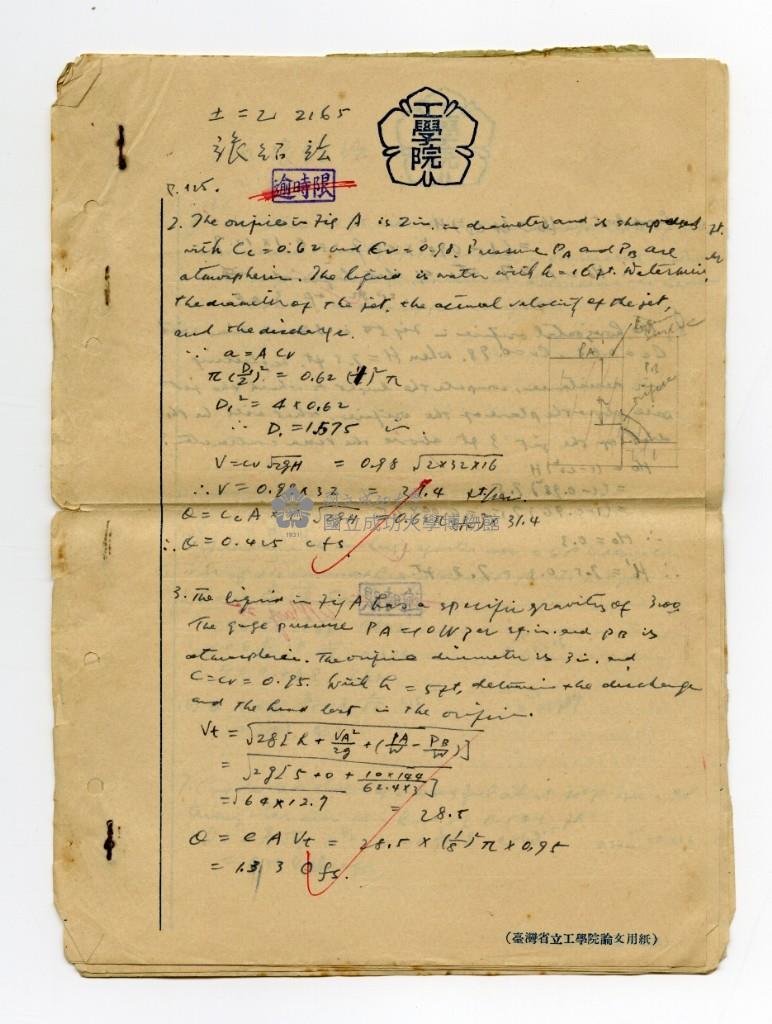 土=乙 2165
張紹
工學院
逾時限
P. 125.
2. The orifice in Fig A is 2 in. in diameter and is sharp
with Cc = 0.62 and Cv = 0.98. Pressure PA and PB are
atmospheric. The liquid is water with h = 16 ft. Determine
the diameter of the jet, the actual velocity of the jet,
and the discharge.
∵ a = A Cv
π(D1/2)² = 0.62 (1)² π
D1² = 4 × 0.62
∴ D1 = 1.575 in
V = Cv √2gH = 0.98 √2×32×16
∴ V = 0.98 × 32 = 31.4 ft/sec.
∴ Q = 0.425 cfs
國立成功大學博物館
1931
3. The liquid in Fig A has a specific gravity of 3.00
The gage pressure PA = 10 # per sq. in. and PB is
atmospheric. The orifice diameter is 3 in. and
C = Cv = 0.95. With h = 5 ft, determine the discharge
and the head lost in the orifice.
Vt = √2g[h + VA²/2g + (PA/W − PB/W)]
= √2g[5 + 0 + 10×144/62.4×3]
= √64 × 12.7 = 28.5
Q = C A Vt = 28.5 × (1/8)² π × 0.95
= 1.33 cfs.
(臺灣省立工學院論文用紙)